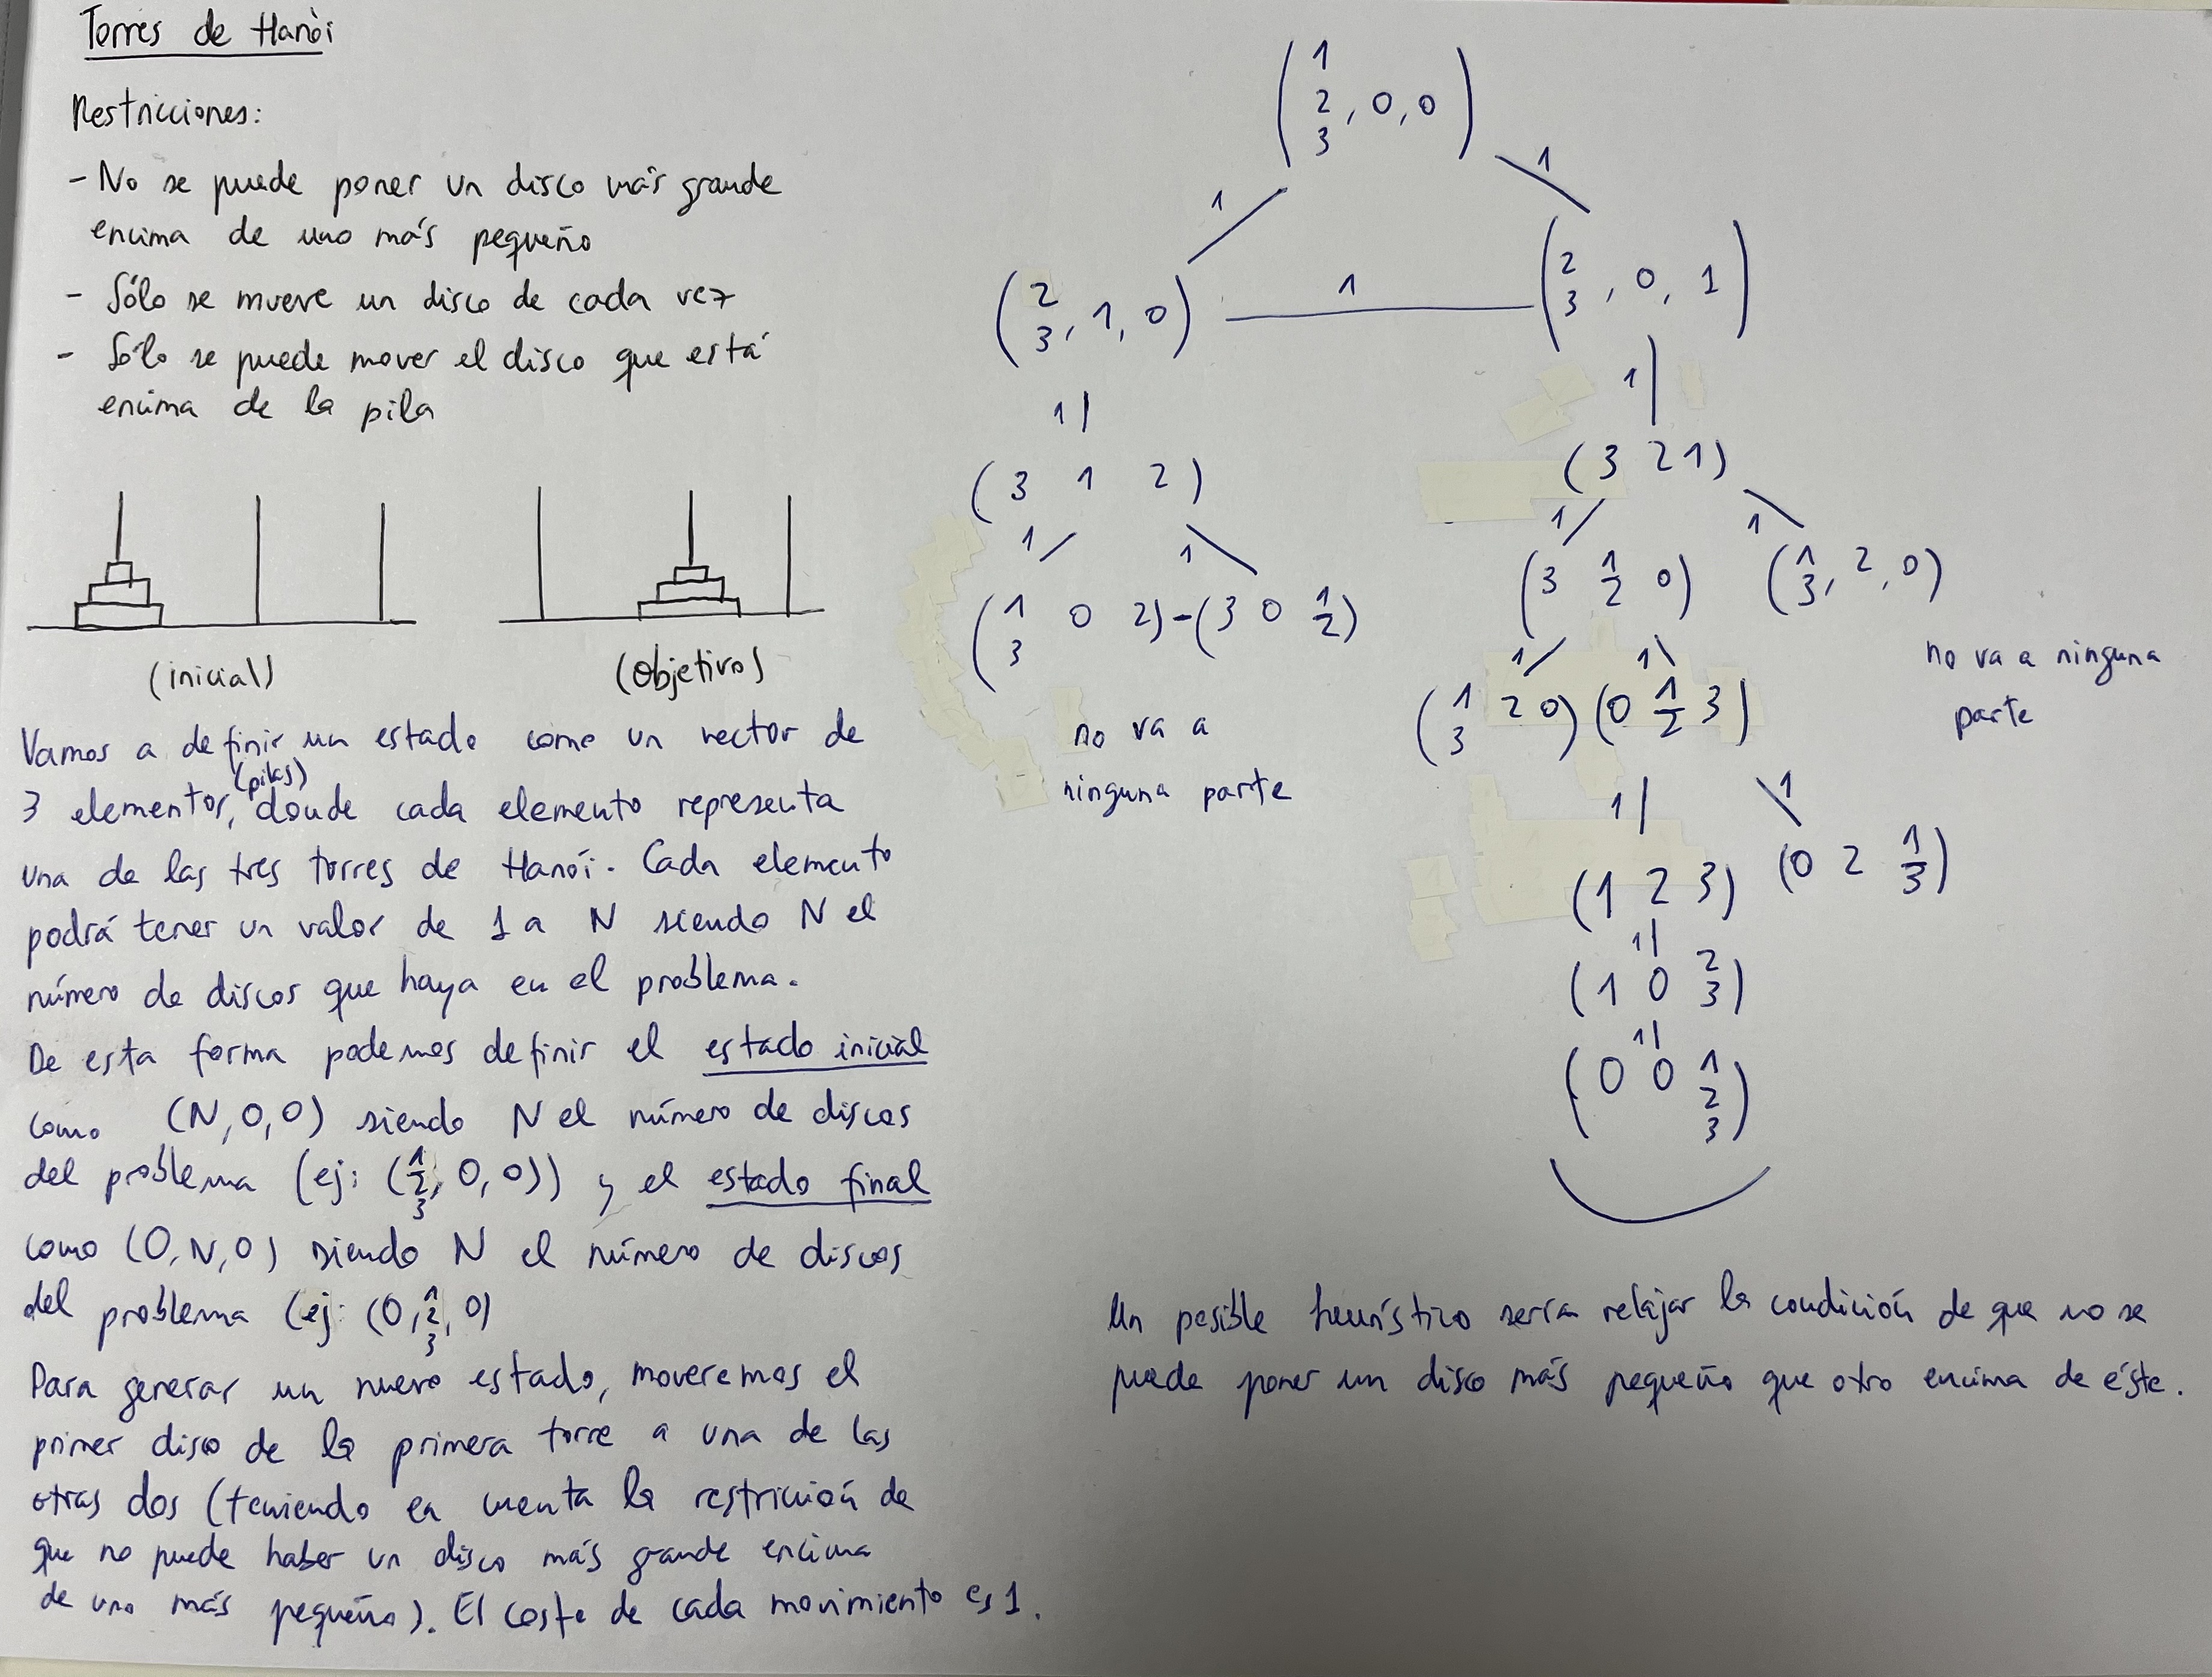 Torres de Hanòi
Restricciones:
- No se puede poner un disco más grande
encima de uno más pequeño
- Sólo se mueve un disco de cada vez
- Sólo se puede mover el disco que está
encima de la pila
(inicial)
(Objetivo)
Vamos a definir un estado como un vector de
(pilas)
3 elementos, donde cada elemento representa
una de las tres torres de Hanói. Cada elemento
podrá tener un valor de 1 a N siendo N el
número de discos que haya en el problema.
De esta forma podemos definir el estado inicial
como (N,0,0) siendo N el número de discos
del problema (ej: (1 2 3, 0, 0)) y el estado final
como (0,N,0) siendo N el número de discos
del problema (ej: (0, 1 2 3, 0)
Para generar un nuevo estado, moveremos el
primer disco de la primera torre a una de las
otras dos (teniendo en cuenta la restricción de
que no puede haber un disco más grande encima
de uno más pequeño). El coste de cada movimiento es 1.
1
2 , 0, 0
3
1
1
2
3, 1, 0
1
2
3 , 0, 1
1
1
(3 1 2)
(3 2 1)
1
1
1
1
(1 3 0 2) - (3 0 1 2)
(3 1 2 0)
(1 3, 2, 0)
no va a
ninguna parte
no va a ninguna
parte
1
1
(1 3 2 0) (0 1 2 3)
1
1
(1 2 3)
(0 2 1 3)
1
(1 0 2 3)
1
(0 0 1 2 3)
Un posible heurístico sería relajar la condición de que no se
puede poner un disco más pequeño que otro encima de éste.